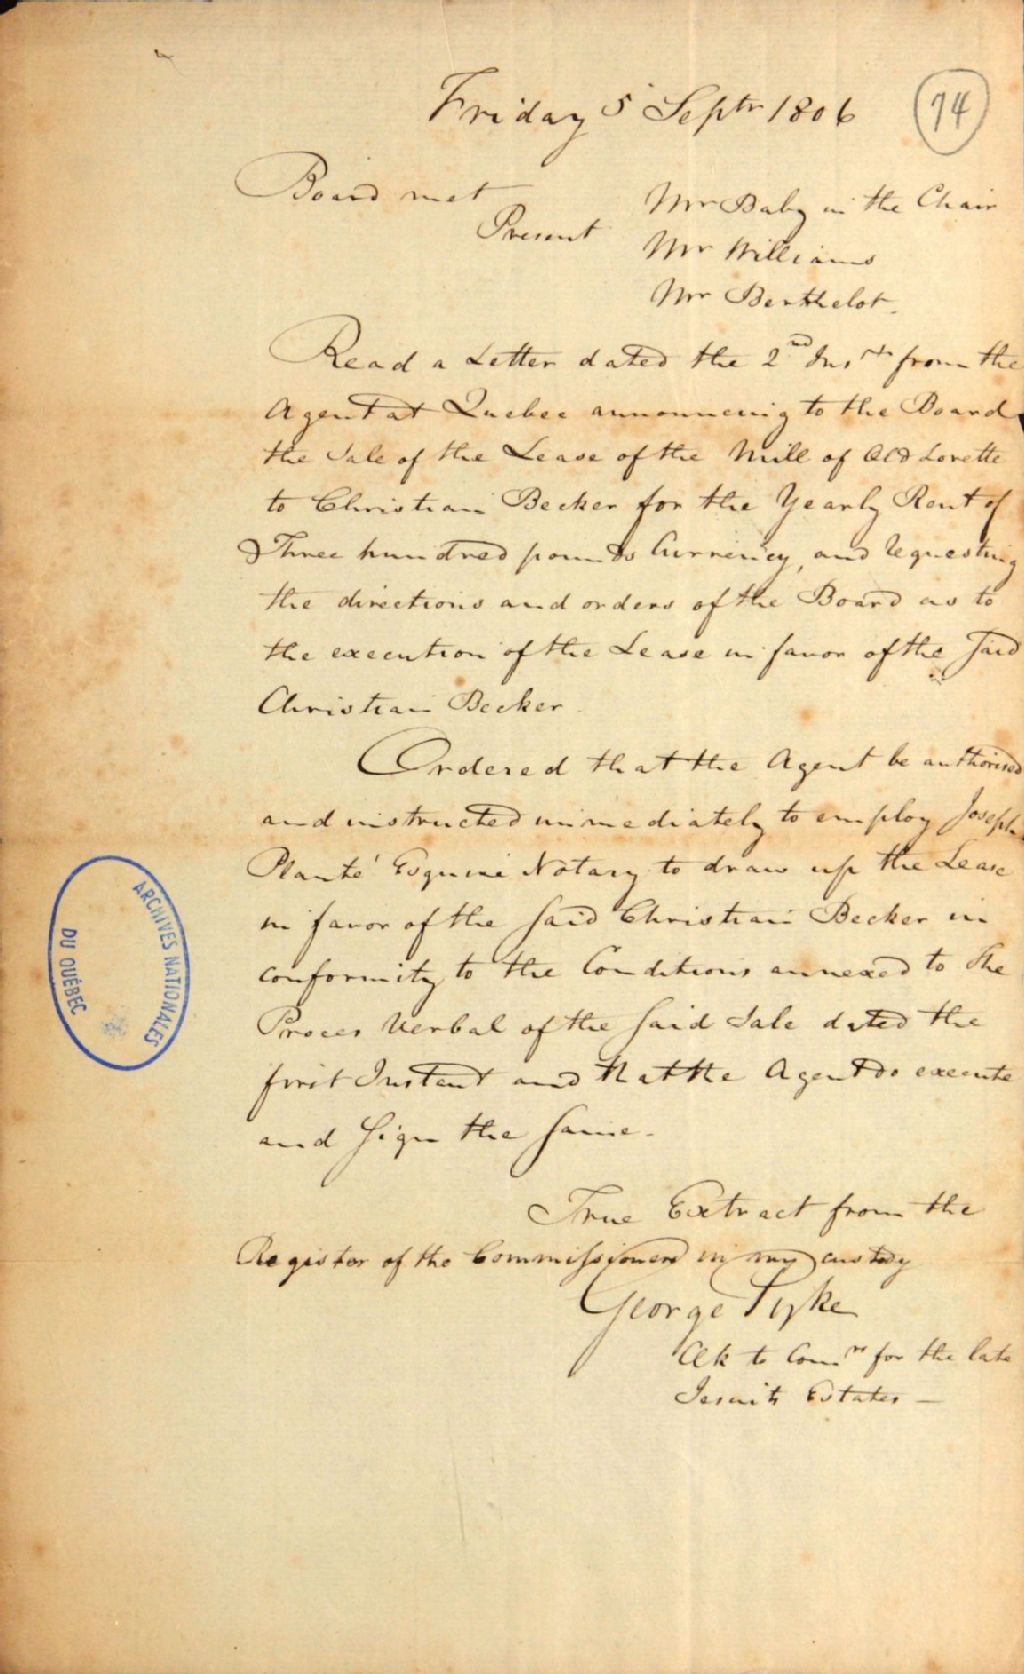 Friday 5 Septr 1806
74
Board met
Present
Mr Baby in the Chair
Mr Williams
Mr Berthelot.
Read a Letter dated the 2nd Inst from the
Agent at Quebec announcing to the Board
the Sale of the Lease of the Mill of Old Lorette
to Christian Becker for the Yearly Rent of
Three hundred pounds Currency, and requesting
the directions and orders of the Board as to
the execution of the Lease in favor of the Said
Christian Becker.
Ordered that the Agent be authorised
and instructed immediately to employ Joseph
Planté Esquire Notary to draw up the Lease
in favor of the Said Christian Becker in
conformity to the Conditions annexed to the
Proces Verbal of the Said Sale dated the
first Instant and that the Agent do execute
and Sign the Same.
True Extract from the
Register of the Commissioners in my custody
George Pyke
Clk to Comrs for the late
Jesuits Estates —
ARCHIVES NATIONALES
DU QUÉBEC